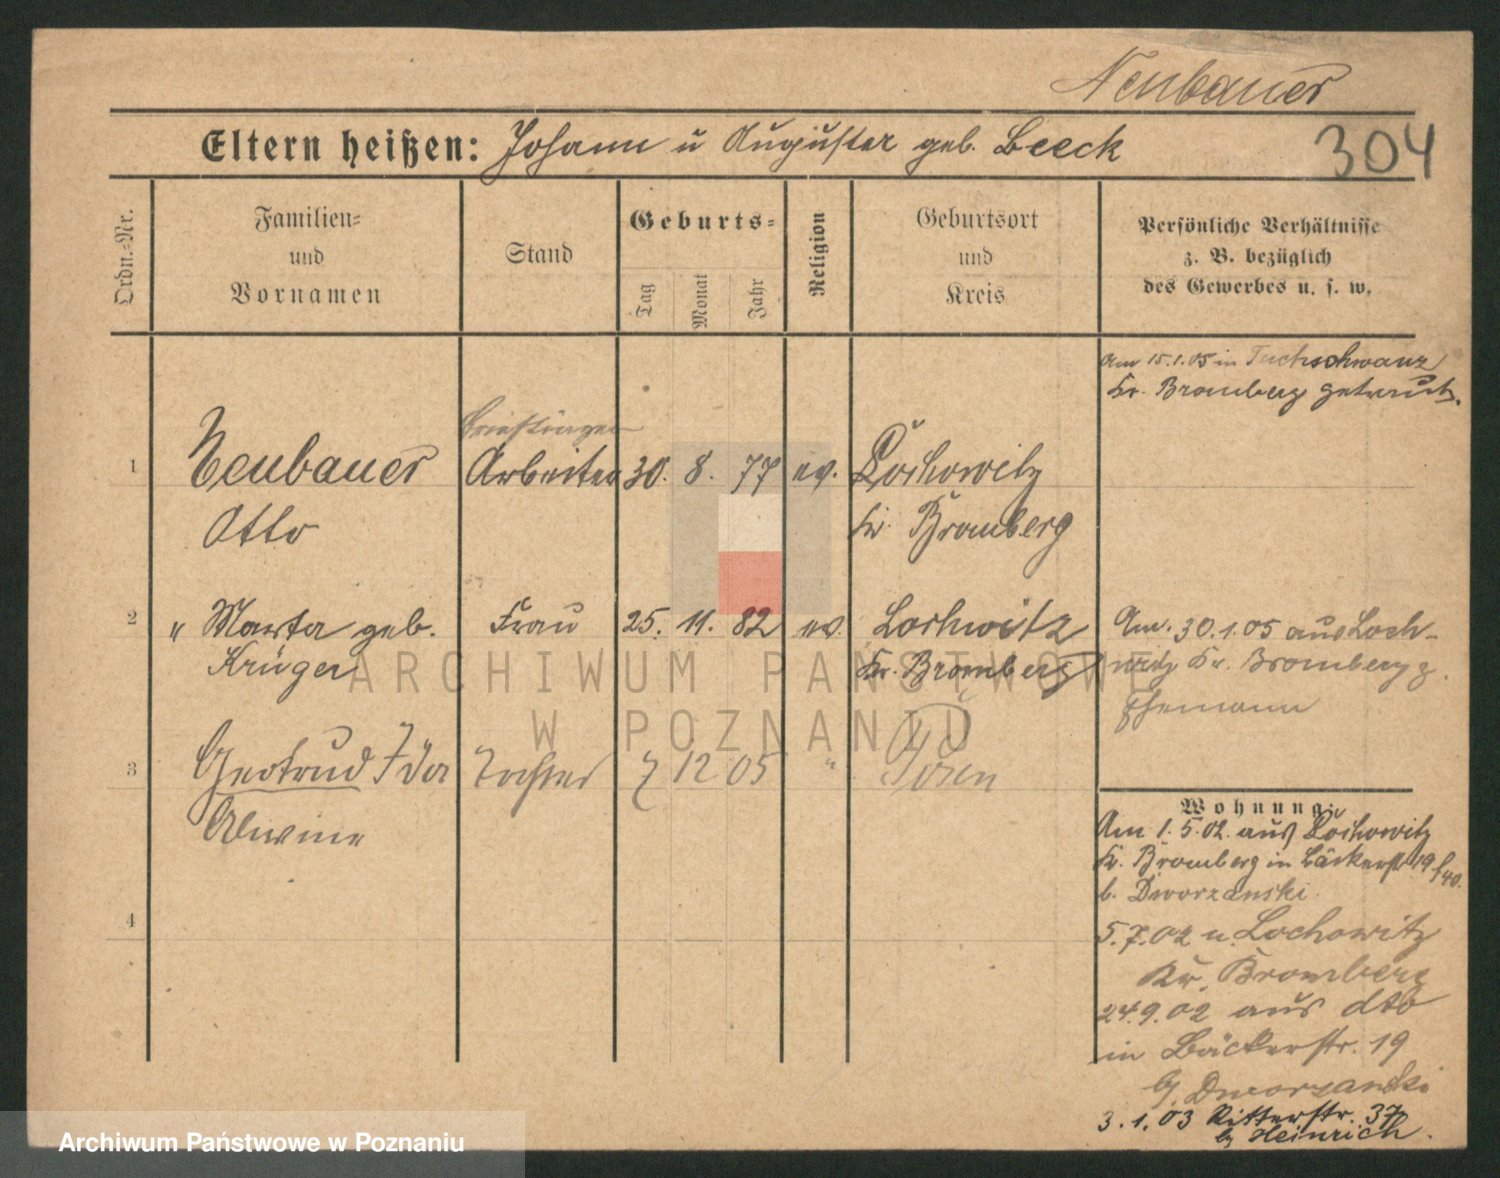 Neubauer
Eltern heißen: Johann u Auguste geb. Beeck
304
Ordn.-Nr.
Familien-
und
Vornamen
Stand
Geburts-
Tag
Monat
Jahr
Religion
Geburtsort
und
Kreis
Persönliche Verhältnisse
z. B. bezüglich
des Gewerbes u. s. w.
Am 15.1.05 in
Kr. Bromberg getraut.
Briefträger
1 Neubauer Arbeiter 30. 8. 77 ev. Lochowitz
Otto Kr. Bromberg
2 " Marta geb. Frau 25. 11. 82 ev. Lochwitz
Krüger Kr. Bromberg
Am. 30.1.05 aus Loch-
witz Kr. Bromberg z.
Ehemann
3 Gertrud Ida Tochter 7 12 05 " Posen
Alwine
4
Wohnung:
Am 1.5.02. aus Lochowitz
Kr. Bromberg in Bäckerstr 19
b. Dworzanski
5.7.02 n. Lochowitz
Kr. Bromberg
24.9.02 aus dto
in Bäckerstr. 19
b/ Dworzanski
3.1.03 Ritterstr. 37
b/ Heinrich.
ARCHIWUM PAŃSTWOWE
W POZNANIU
Archiwum Państwowe w Poznaniu